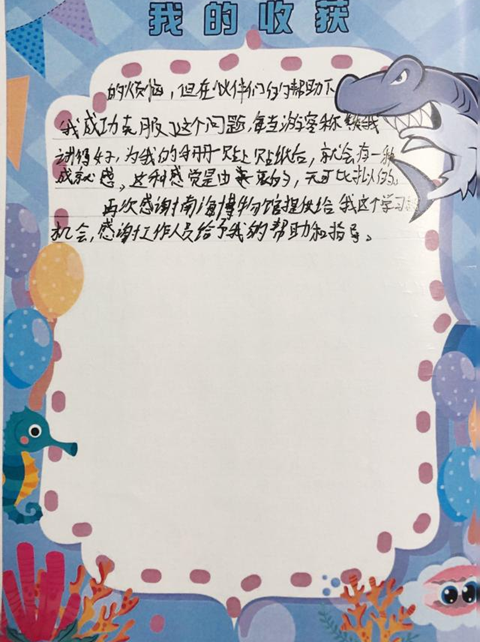 我的收获
的烦恼，但在伙伴们的帮助下
我成功克服了这个问题，每当游客称赞我
讲得好，为我的手册贴上贴纸后，就会有一种
成就感，这种感觉是由衷的，无可比拟的。
再次感谢南海博物馆提供给我这个学习
机会，感谢工作人员给予我的帮助和指导。